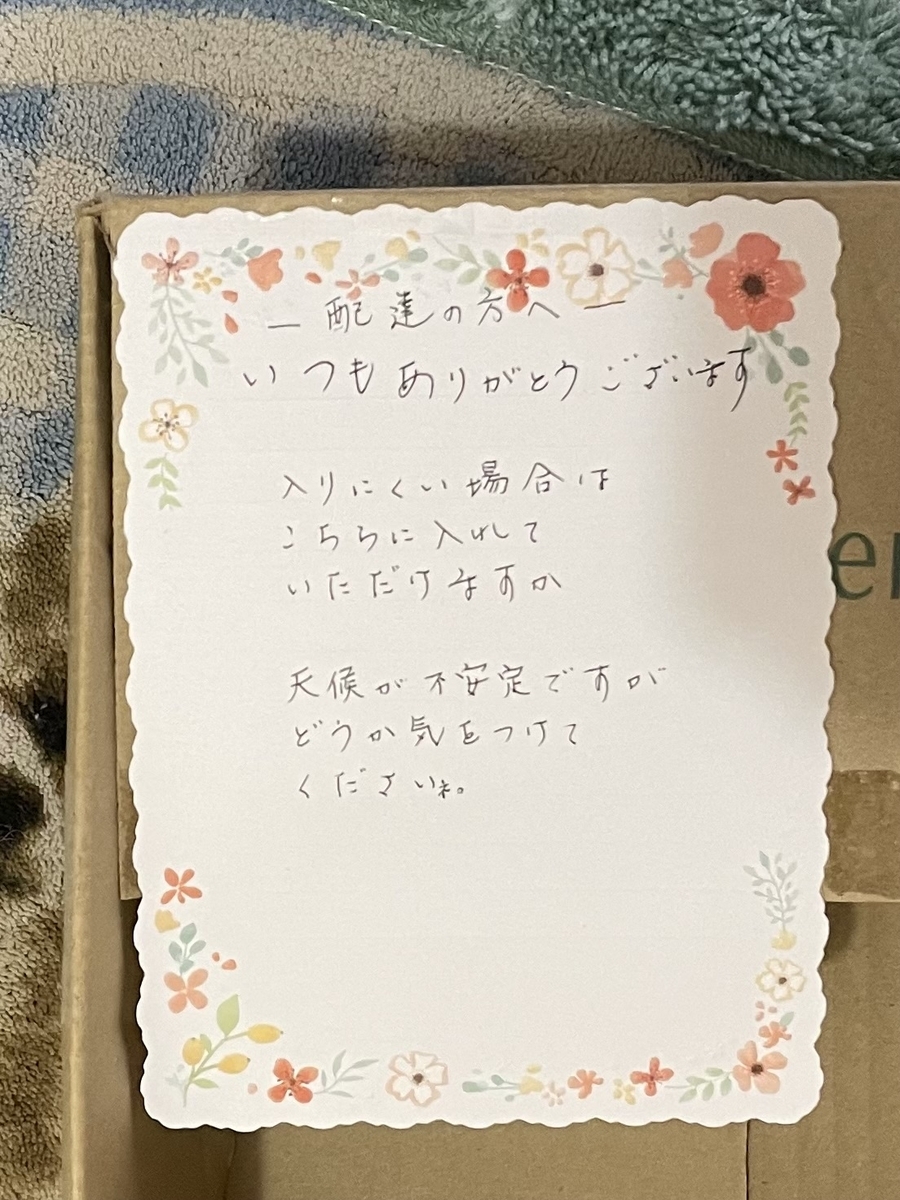 ― 配達の方へ ―
いつもありがとうございます
入りにくい場合は
こちらに入れて
いただけますか
天候が不安定ですが
どうか気をつけて
くださいね。
er